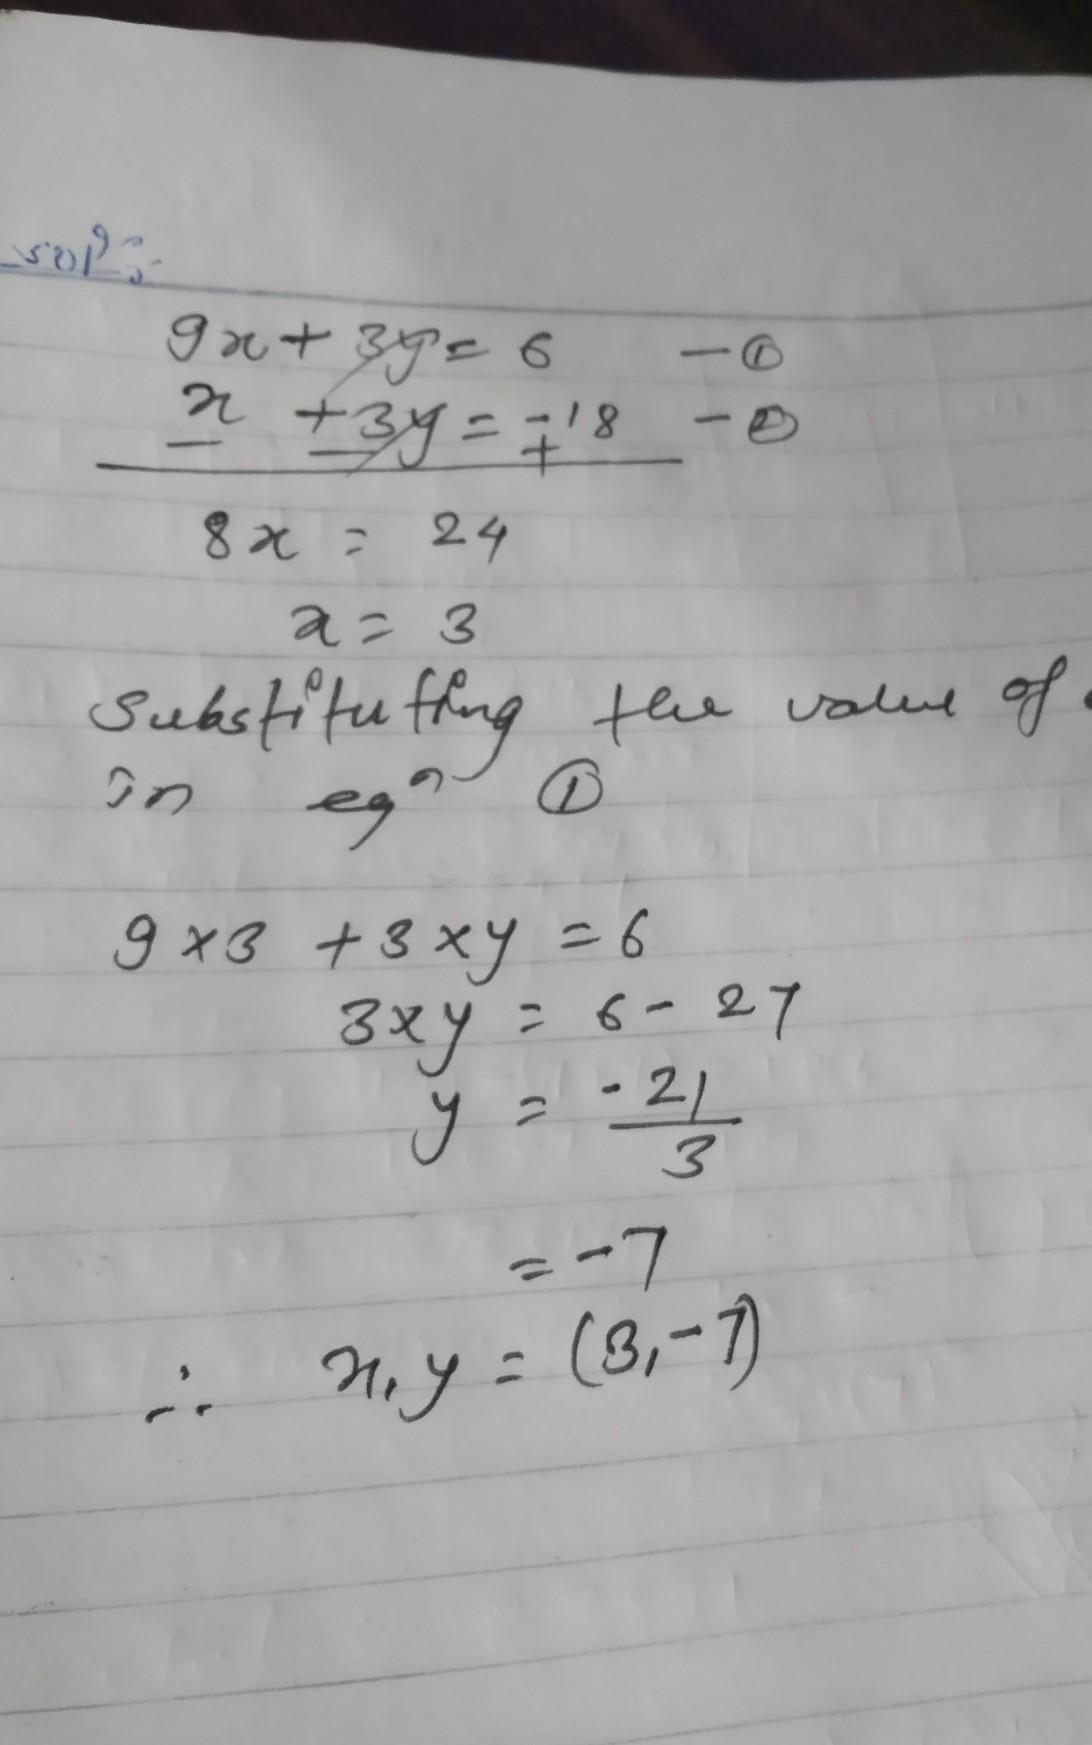 solⁿ:-
9x + 3y = 6 - ①
x + 3y = -18 - ②
- - +
8x = 24
x = 3
Substituting the value of
in eqⁿ ①
9 × 3 + 3 × y = 6
3 × y = 6 - 27
y = -21/3
= -7
∴ x, y = (3, -7)